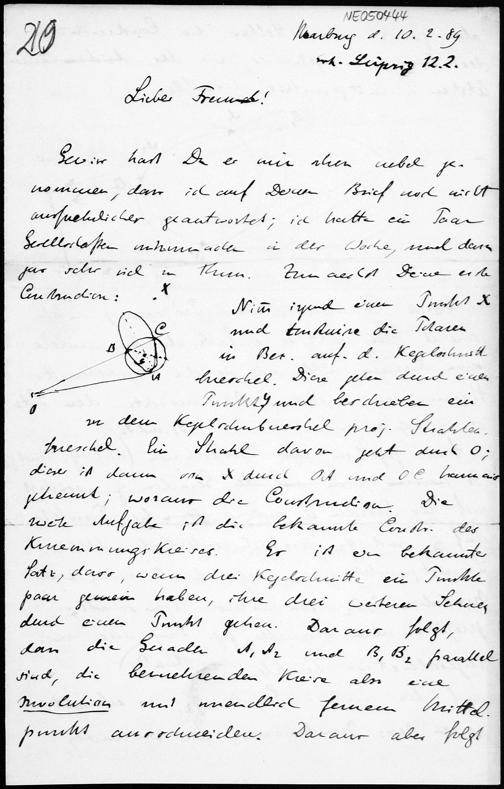 NEQ50444
219
Marburg d. 10.2.89
Leipzig 12.2.
Lieber Freund!
Gewiss hast Du es mir schon uebel ge-
nommen, dass ich auf Deinen Brief noch nicht
ausfuehrlicher geantwortet; ich hatte ein Paar
Gesellschaften mitzumachen in der Woche, und dazu
gar sehr viel zu thun. Zunaechst Deine erste
Construction:
X
B
C
A
O
Nim̅ irgend einen Punkt X
und construire die Polaren
in Bez. auf d. Kegelschnitt
bueschel. Diese gehen durch einen
Punkt Y und beschreiben ein
zu dem Kegelschnbueschel proj. Strahlen-
bueschel. Ein Strahl davon geht durch O;
dieser ist dann von X durch OA und OC harmonisch
getrennt; woraus die Construction. Die
zweite Aufgabe ist die bekannte Constr. des
Kruemmungskreises. Es ist ein bekannter
Satz, dass, wenn drei Kegelschnitte ein Punkte
paar gemein haben, ihre drei weiteren Sehnen
durch einen Punkt gehen. Daraus folgt,
dass die Geraden A₁A₂ und B₁B₂ parallel
sind, die beruehrenden Kreise also eine
Involution mit unendlich fernem Mittel-
punkt ausschneiden. Daraus aber folgt